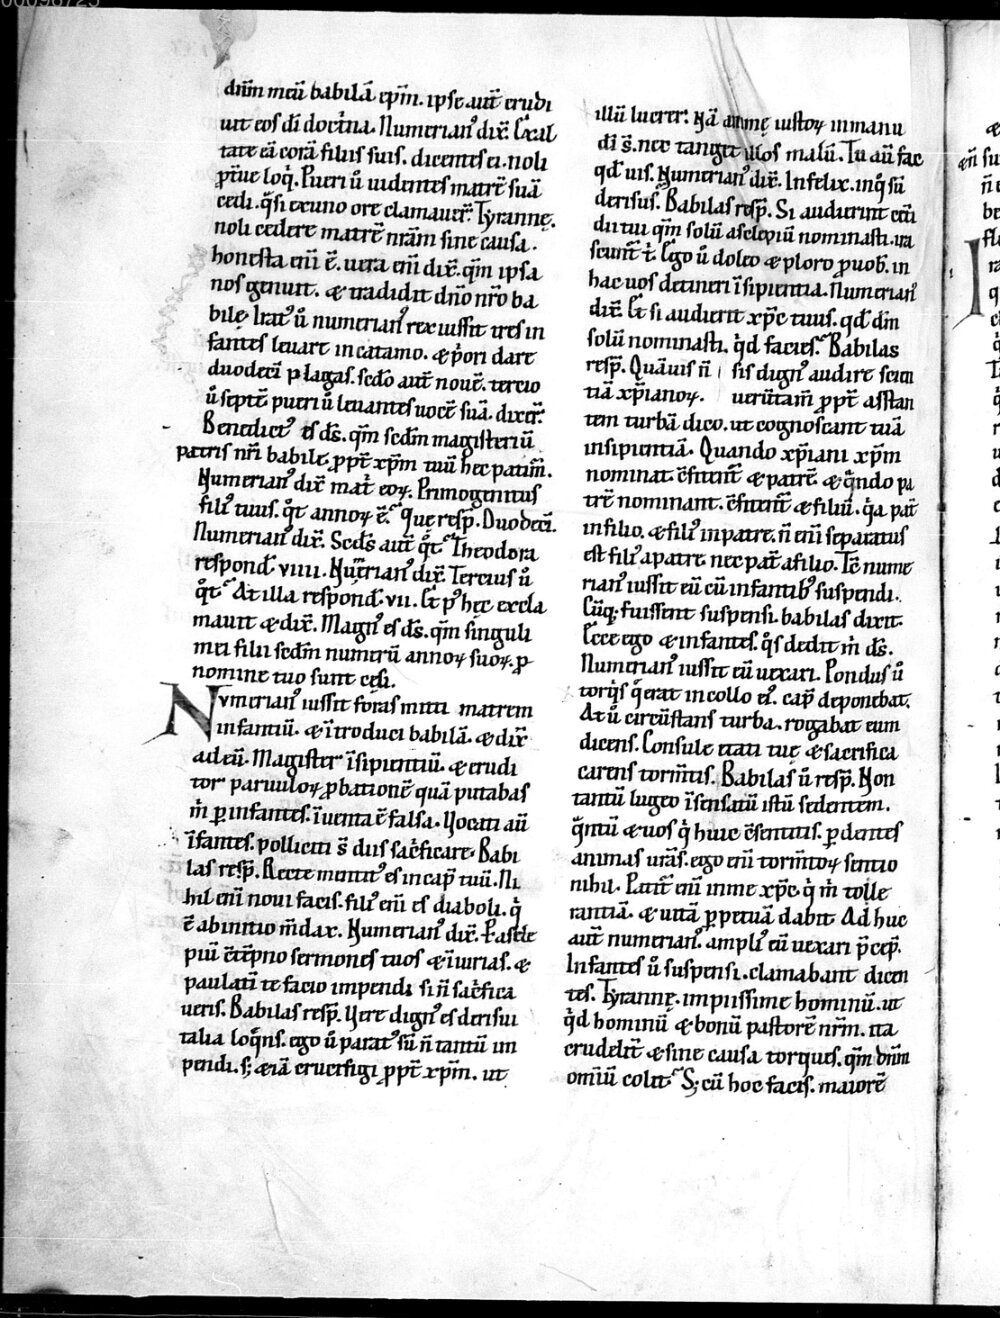 dn̄m meū babilā ep̄m. ipse aut̄ erudi
uit eos di doct̄na. Numerian᾽ dix̄. Exal
tate eā corā filiis suis. dicentes ei. noli
ꝓt̾ue loq̇. Pueri ů uidentes matrē suā
cedi. q̇si ex uno ore clamauer̄. Tyranne.
noli cedere matrē nr̄am sine causa.
honesta eni ē. uera eni dix̄. qm̄ ipsa
nos genuit. & tradidit dn̄o nr̄o ba
bile. Irat᾽ ů numerian᾽ rex iussit tres in
fantes leuari in catamo. & p̾ori dare
duodeci plagas. sedo aut̄ nouē. tercio
ů septē pueri ů leuantes uocē suā. dixer̄.
Benedict᾽ es ds̄. qm̄ sedm̄ magisteriū
patris nr̄i babile. ꝓpt̄ xp̄m tuū hec patim̄.
Numerian᾽ dix̄ mat̾ eoꝝ. Primogenitus
fili᾽ tuus. q̊t annoꝝ ē. Que resp̄. Duodeci.
Numerian᾽ dix̄. Seds̄ aut̄ q̊t. Theodora
respond̄. VIIII. Num̄erian᾽ dix̄. Tercius ů
q̊t. At illa respond̄. VII. Et p᾽ hec excla
mauit & dix̄. Magn᾽ es ds̄. qm̄ singuli
mei filii sedm̄ numerū annoꝝ suoꝝ. ꝓ
nomine tuo sunt cesi.
Numerian᾽ iussit foras mitti matrem
infantiū. & ītroduci babilā. & dix̄
ad eū. Magister īsipientiū. & erudi
tor paruuloꝝ ꝓbationē quā putabas
m̾ ꝑ infantes. īuenta ē falsa. Uocati aū
īfantes. polliciti s̄ diis sac̾ficare. Babi
las resp̄. Recte mentit᾽ es in cap̄ tuū. Ni
hil eni noui facis. fili᾽ eni es diaboli. q̇
ē ab initio m̄dax. Numerian᾽ dix̄. Passe
piū ēt̄ēpno sermones tuos & īiurias. &
paulati te facio impendi si n̄ sac̾fica
ueris. Babilas resp̄. Uere dign᾽ es derisui
talia loq̄ns. ego ů parat᾽ sū n̄ tantū im
pendi. s; & iā crucifigi ꝓpt̄ xp̄m. ut
illū lucrer. Nā anime iustoꝝ in manu
di s̄. nec tanget illos malū. Tu aū fac
qd̄ uis. Numerian᾽ dix̄. Infelix. inq̇ sū
derisus. Babilas resp̄. Si audierint ceci
dii tui qm̄ solū asclepiū nominasti. ira
scunt̄ t̾. Ego ů doleo & ploro ꝓ uob̄. in
hac uos detineri īsipientia. Numerian᾽
dix̄. Et si audierit xp̄c tuus. qd̄ dm̄
solū nominasti. q̇d facies. Babilas
resp̄. Quāuis n̄ sis dign᾽ audire scien
tiā xp̄ianoꝝ. uerūtam̄ ꝓpt̄ asstan
tem turbā dico. ut cognoscant tuā
insipientiā. Quando xp̄iani xp̄m
nominat. c̄fitent̄ & patrē. & q̄ndo pa
trē nominant. c̄fitent̄ & filiū. q̇a pat̾
in filio. & fili᾽ in patre. n̄ eni separatus
est fili᾽ a patre. nec pat̾ a filio. Tc̄ nume
rian᾽ iussit eū cū infantib᾽ suspendi.
Cūq; fuissent suspensi. babilas dixit.
Ecce ego & infantes. q̊s dedit m̾ ds̄.
Numerian᾽ iussit eū uexari. Pondus ů
torq̇s q̇ erat in collo ei᾽. cap̄ deponebat.
At ů circūstans turba. rogabat eum
dicens. Consule etati tue & sacrifica
carens torm̄tis. Babilas ů resp̄. Non
tantū lugeo īsensatū istū sedentem.
q̄ntū & uos q̇ huic c̄sentitis. ꝑdentes
animas ur̄as. ego eni torm̄toꝝ sentio
nihil. Patit̄ eni in me xp̄c q̇ m̾ tolle
rantiā. & uitā ꝑpetuā dabit. Ad huc
aut̄ numerian᾽. ampli᾽ eū uexari p̄cep̄.
Infantes ů suspensi. clamabant dicen
tes. Tyranne. impiissime hominū. ut
q̇d hominū & bonū pastorē nr̄m. ita
crudelit̾ & sine causa torques. qm̄ dn̄m
omiū colit. S; cū hoc facis. maiorē